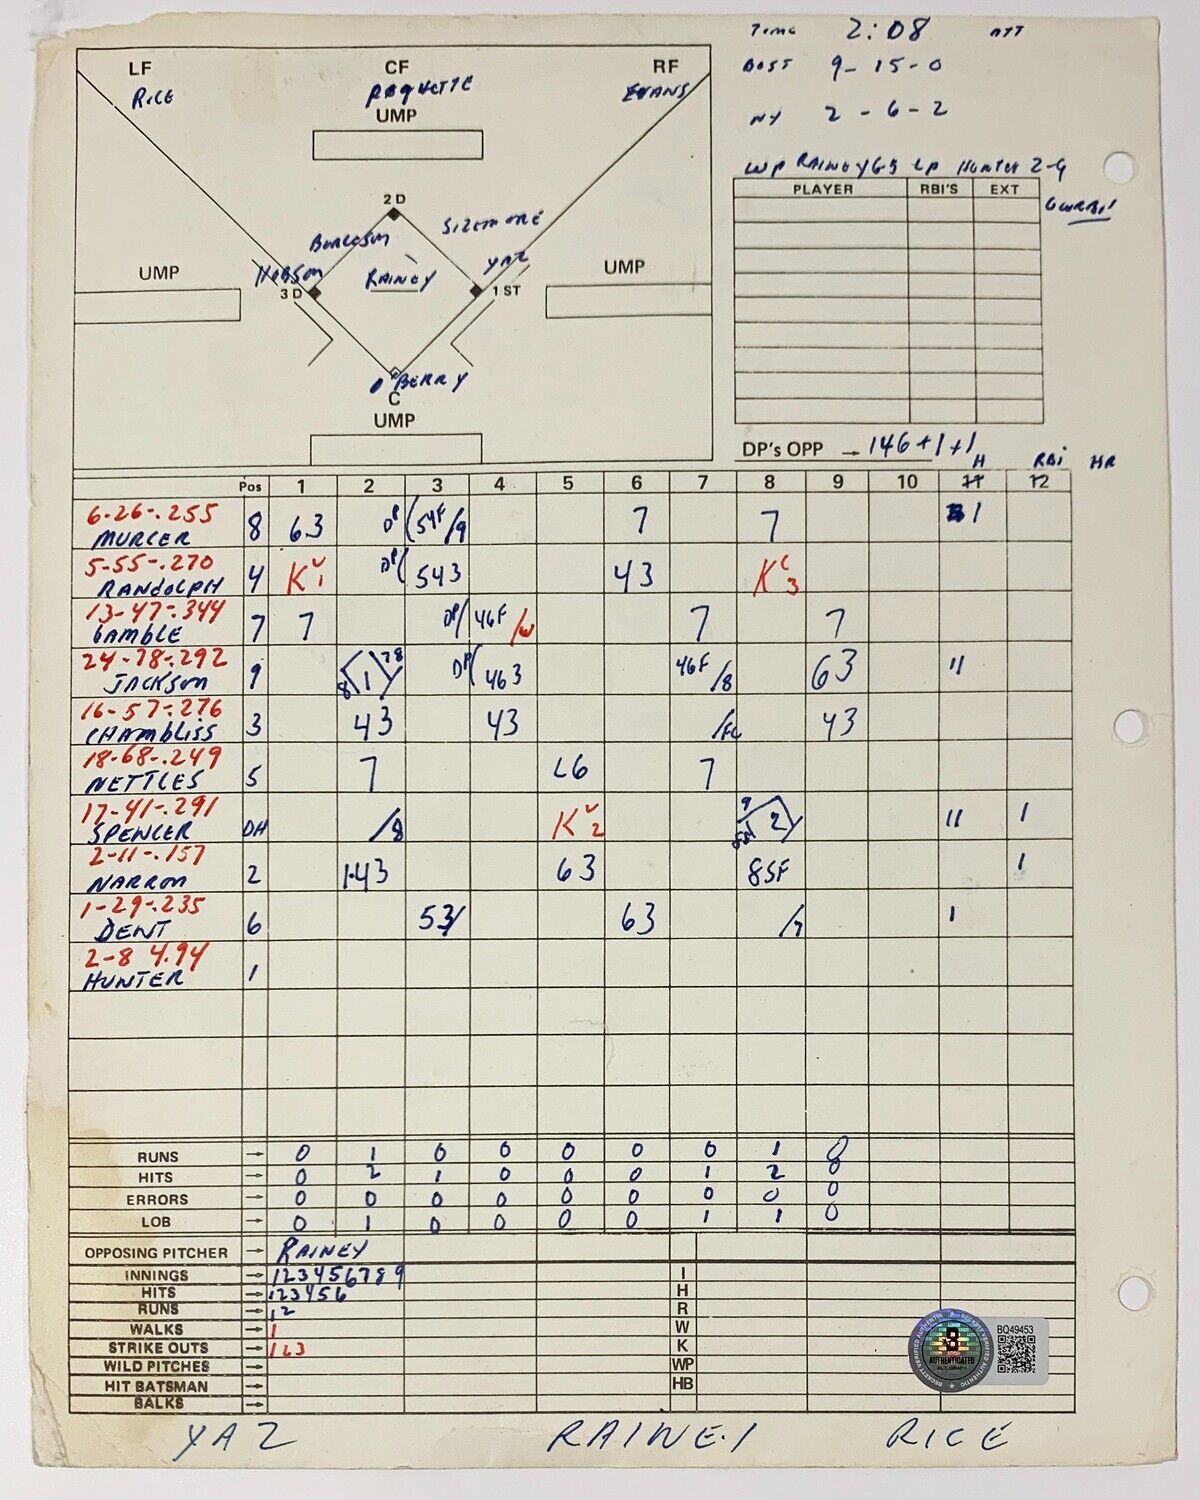 TIME 2:08 ATT
BOST 9-15-0
NY 2-6-2
WP RAINEY 6-5 LP HUNTER 2-9
LF CF RF
RICE EVANS
UMP
2 D
BURLESON SIZEMORE
HOBSON RAINEY YAZ
UMP UMP
3 D 1 ST
O'BERRY
C
UMP
PLAYER RBI'S EXT
GWRBI
DP's OPP → 146+1+1
H RBI HR
Pos 1 2 3 4 5 6 7 8 9 10 11 12
6-26-.255
MURCER 8 63 DP 54F/9 7 7 1
5-55-.270
RANDOLPH 4 K 1 DP 543 43 K 3
13-47-.344
GAMBLE 7 7 DP 46F/W 7 7
24-78-.292
JACKSON 9 8 1 78 DP 463 46F/8 63 11
16-57-.276
CHAMBLISS 3 43 43 /FC 43
18-68-.249
NETTLES 5 7 L6 7
17-41-.291
SPENCER DH /8 K 2 9 2 11 1
2-11-.157
NARRON 2 1-43 63 8SF 1
1-29-.235
DENT 6 53/ 63 /7 1
2-8 4.94
HUNTER 1
RUNS → 0 1 0 0 0 0 0 1 0
HITS → 0 2 1 0 0 0 1 2 0
ERRORS → 0 0 0 0 0 0 0 0 0
LOB → 0 1 0 0 0 0 1 1 0
OPPOSING PITCHER → RAINEY
INNINGS → 123456789 I
HITS → 123456 H
RUNS → 12 R
WALKS → 1 W
STRIKE OUTS → 123 K
WILD PITCHES → WP
HIT BATSMAN → HB
BALKS →
B
AUTHENTICATED
AUTOGRAPH
BQ49453
YAZ RAINEY RICE